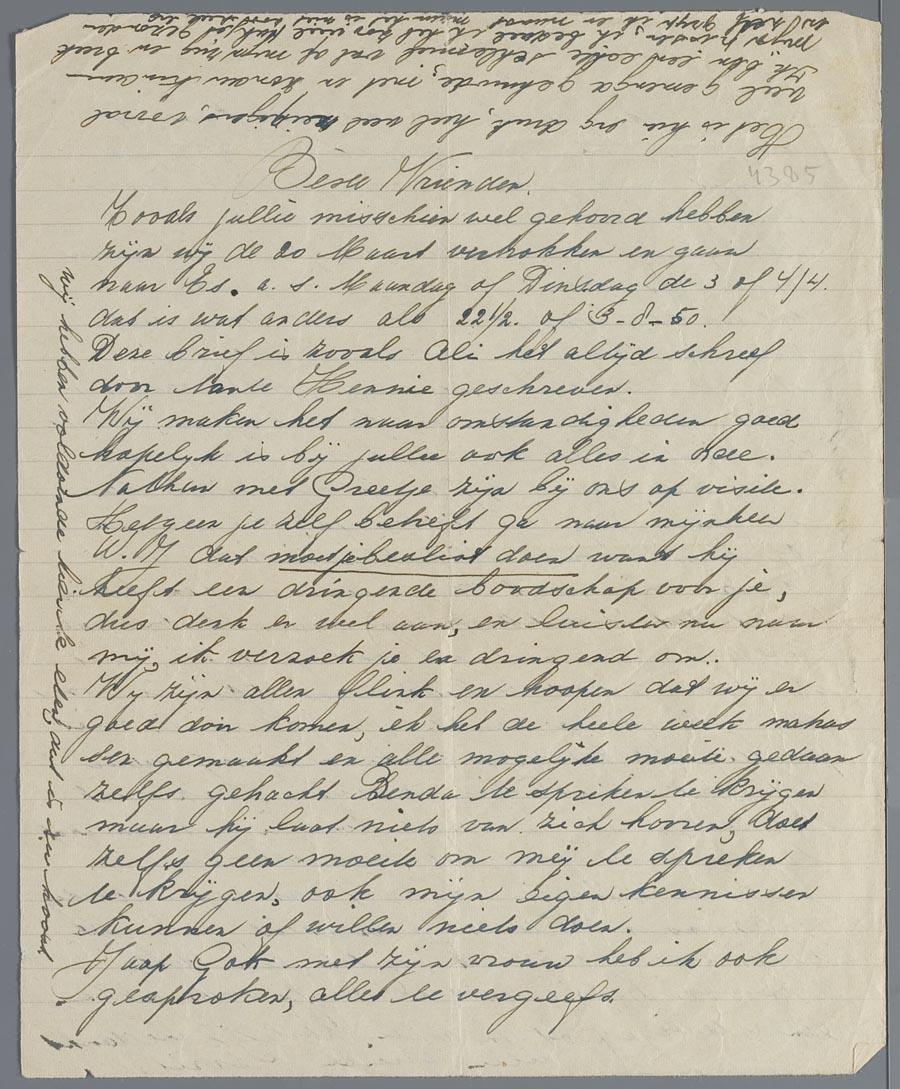 Het is hier erg druk, heel veel, vooral
veel gemengd gehuwde, met en zonder kinderen
Ik ben een echte
mijn, ik bestel ik heb
Beste Vrienden.
4385
Zooals jullie misschien wel gehoord hebben
zijn wij de 20 Maart vertrokken en gaan
naar Es. a. s. Maandag of Dinsdag de 3 of 4/4.
dat is wat anders als 22 1/2. of 3-8-50.
Deze brief is zooals Ali het altijd schreef
door tante Hennie geschreven.
Wij maken het naar omstandigheden goed
hopelijk is bij jullie ook alles in orde.
Nathan met Greetje zijn bij ons op visite.
Hetgeen je zelf betreft ga naar mijnheer
W. J dat moet je beslist doen want hij
heeft een dringende boodschap voor je,
dus denk er wel aan, en luister nu naar
mij, ik verzoek je er dringend om.
Wij zijn allen flink en hoopen dat wij er
goed door komen, ik heb de heele week
gemaakt en alle mogelijke moeite gedaan
zelfs getracht Benda te spreken te krijgen
maar hij laat niets van zich hooren, doet
zelfs geen moeite om mij te spreken
te krijgen, ook mijn eigen kennissen
kunnen of willen niets doen.
Jaap Gok met zijn vrouw heb ik ook
gesproken, alles te vergeefs.
wij hebben voldoende